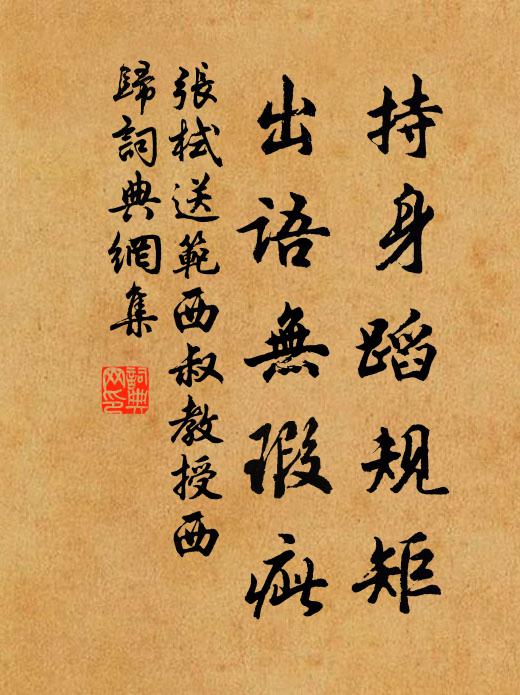 持身蹈規矩
出語無瑕疵
張栻送範西叔教授西
歸詞典網集
詞典网印